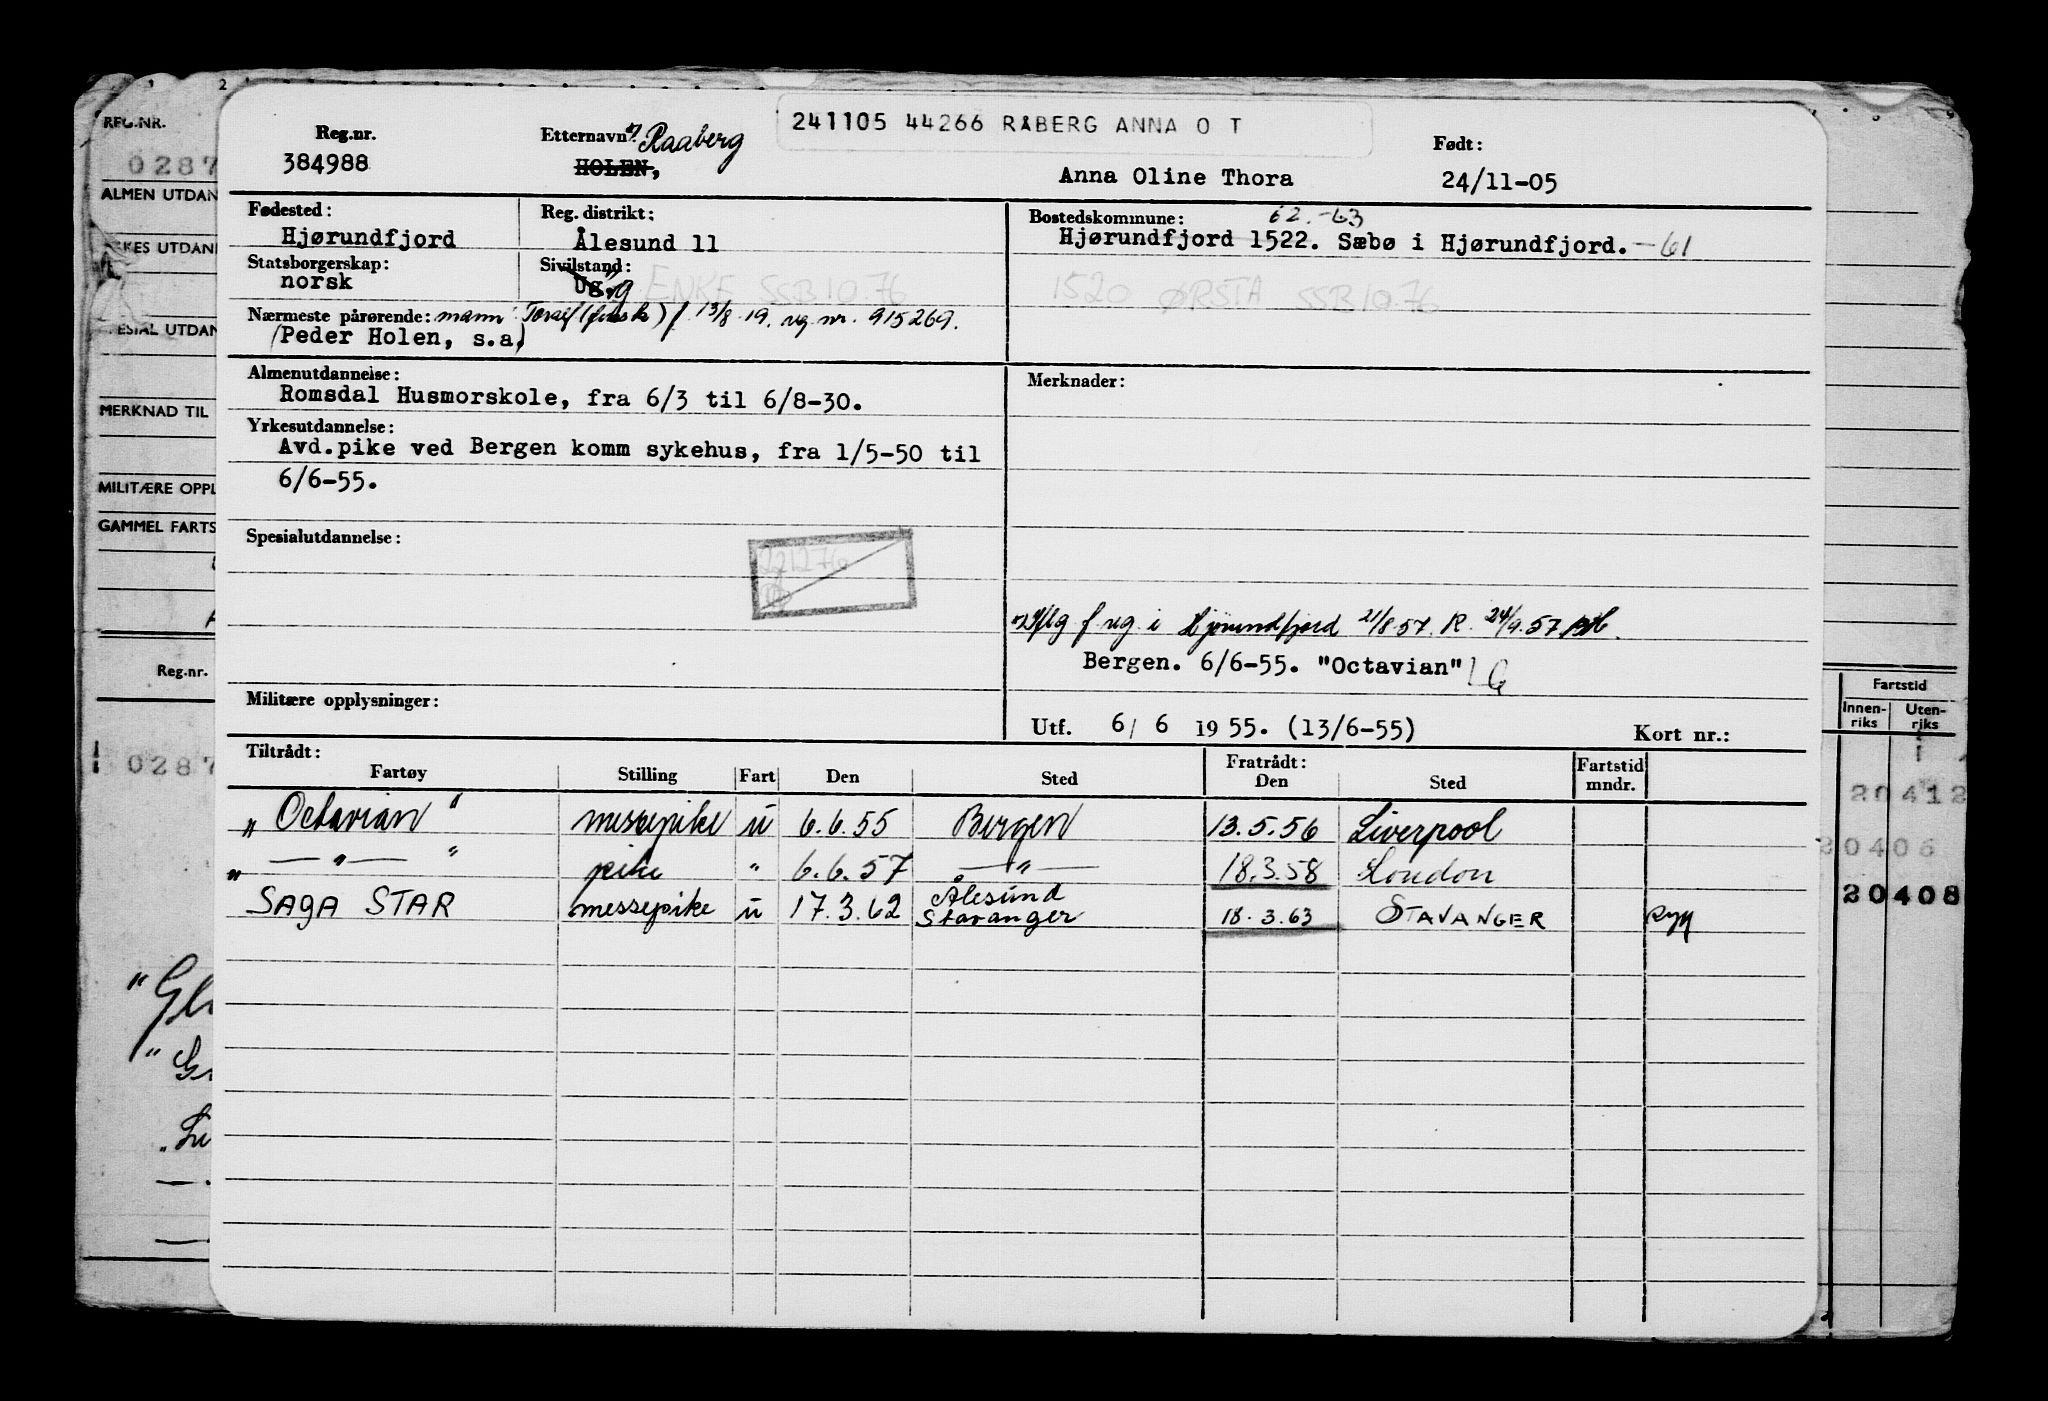 REG.NR.
0287
ALMEN UTDAN
KES UTDAN
ESIAL UTDAN
MERKNAD TIL
MILITÆRE OPPL
GAMMEL FARTS
Reg.nr.
0287
241105 44266 RÅBERG ANNA O T
Reg.nr. Etternavn: Raaberg Født:
384988 HOLEN, Anna Oline Thora 24/11-05
Fødested: Reg. distrikt: Bostedskommune: 62.-63
Hjørundfjord Ålesund 11 Hjørundfjord 1522. Sæbø i Hjørundfjord. -61
Statsborgerskap: Sivilstand:
norsk Ug. g ENKE SSB 10.76 1520 ØRSTA SSB 10.76
Nærmeste pårørende: mann: f. 13/8.19. reg nr. 915269.
(Peder Holen, s.a.)
Almenutdannelse: Merknader:
Romsdal Husmorskole, fra 6/3 til 6/8-30.
Yrkesutdannelse:
Avd.pike ved Bergen komm sykehus, fra 1/5-50 til
6/6-55.
Spesialutdannelse:
221276
i Hjørundfjord 21/8.57. R. 24/9.57
Bergen. 6/6-55. "Octavian"
Militære opplysninger:
Utf. 6/ 6 1955. (13/6-55) Kort nr.:
Tiltrådt: Fratrådt: Fartstid
Fartøy Stilling Fart Den Sted Den Sted mndr.
"Octavian" messepike u 6.6.55 Bergen 13.5.56 Liverpool
" — " — " pike " 6.6.57 — " — 18.3.58 London
SAGA STAR messepike u 17.3.62 Ålesund
Stavanger 18.3.63 STAVANGER
Fartstid
Innen-riks Uten-riks
20412
20406
20408